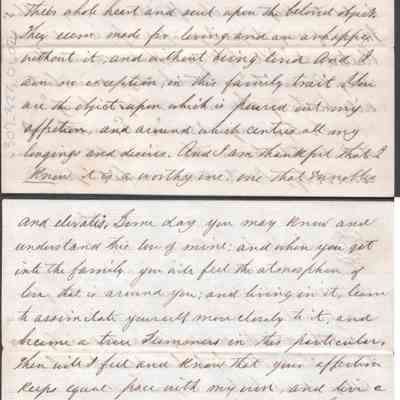 their whole heart and soul upon the beloved object.
They seem made for loving and are unhappy
without it, and without being loved. And I
am no exception in this family trait. You
are the object upon which is poured out my
affection, and around which centres all my
longings and desires. And I am thankful that I
know it is a worthy one, one that ennobles
and elevates. Some day you may know and
understand this love of mine; and when you get
into the family you will feel the atmosphere of
love that is around you, and living in it, learn
to assimilate yourself more closely to it, and
become a true Summers in this particular.
Then will I feel and know that your affection
keeps equal pace with my own, and live a